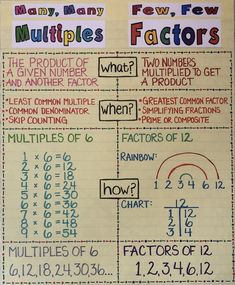 Many, Many
Multiples
Few, Few
Factors
THE PRODUCT OF
A GIVEN NUMBER
AND ANOTHER FACTOR
what?
TWO NUMBERS
MULTIPLIED TO GET
A PRODUCT
•LEAST COMMON MULTIPLE
•COMMON DENOMINATOR
•SKIP COUNTING
when?
•GREATEST COMMON FACTOR
•SIMPLIFYING FRACTIONS
•PRIME OR COMPOSITE
MULTIPLES OF 6
1 × 6 = 6
2 × 6 = 12
3 × 6 = 18
4 × 6 = 24
5 × 6 = 30
6 × 6 = 36
7 × 6 = 42
8 × 6 = 48
9 × 6 = 54
how?
FACTORS OF 12
RAINBOW:
1 2 3 4 6 12
CHART:
12
1 12
2 6
3 4
MULTIPLES OF 6
6,12,18,24,30,36...
FACTORS OF 12
1, 2, 3, 4, 6, 12